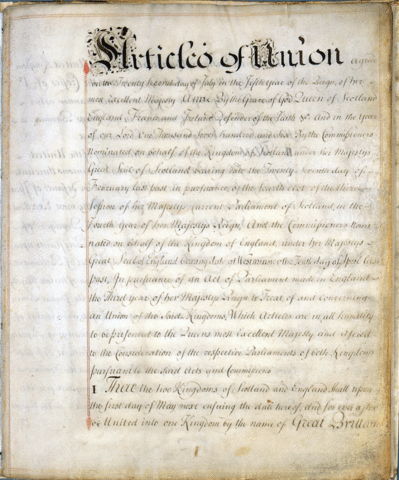 Articles of Union agreed
on the Twenty Second day of July in the Fifth year of the Reign of her
most Excellent Majesty Anne By the Grace of God Queen of Scotland
England France and Ireland Defender of the Faith &c And in the Year
of our Lord One Thousand Seven hundred and Six By the Commissioners
Nominated on behalf of the Kingdom of Scotland under her Majestys
Great Seal of Scotland bearing date the Twenty Seventh day of
February last past in pursuance of the fourth Act of the third
Session of her Majestys current Parliament of Scotland in the
fourth Year of her Majestys Reign And the Commissioners Nomi
nated on behalf of the Kingdom of England under her Majestys
Great Seal of England bearing date at Westminster the Tenth day of April last
past In pursuance of an Act of Parliament made in England
the Third year of her Majestys Reign to Treat of and concerning
an Union of the said Kingdoms Which Articles are in all humility
to be presented to the Queens most Excellent Majesty and offered
to the Consideration of the respective Parliaments of both Kingdoms
pursuant to the said Acts and Commissions
I That the two Kingdoms of Scotland and England shall upon
the first day of May next ensuing the date hereof and for ever after
be United into one Kingdom by the name of Great Britain